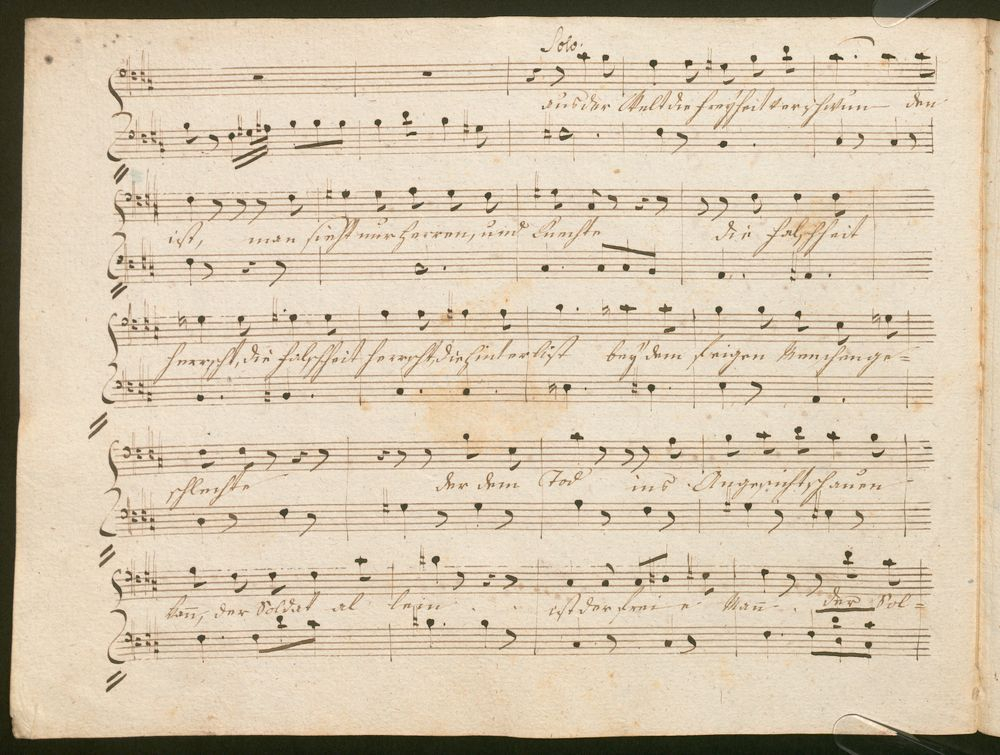 Solo.
aus der Welt die Freyheit verschwun - den
ist, man sieht nur Herren, und Knechte die Falschheit
herrscht, die Falschheit herrscht, die Hinterlist bey dem feigen Menschenge =
schlechte der dem Tod ins Angesicht schauen
kann, der Soldat al lein ist der frei e Mann. der Sol =